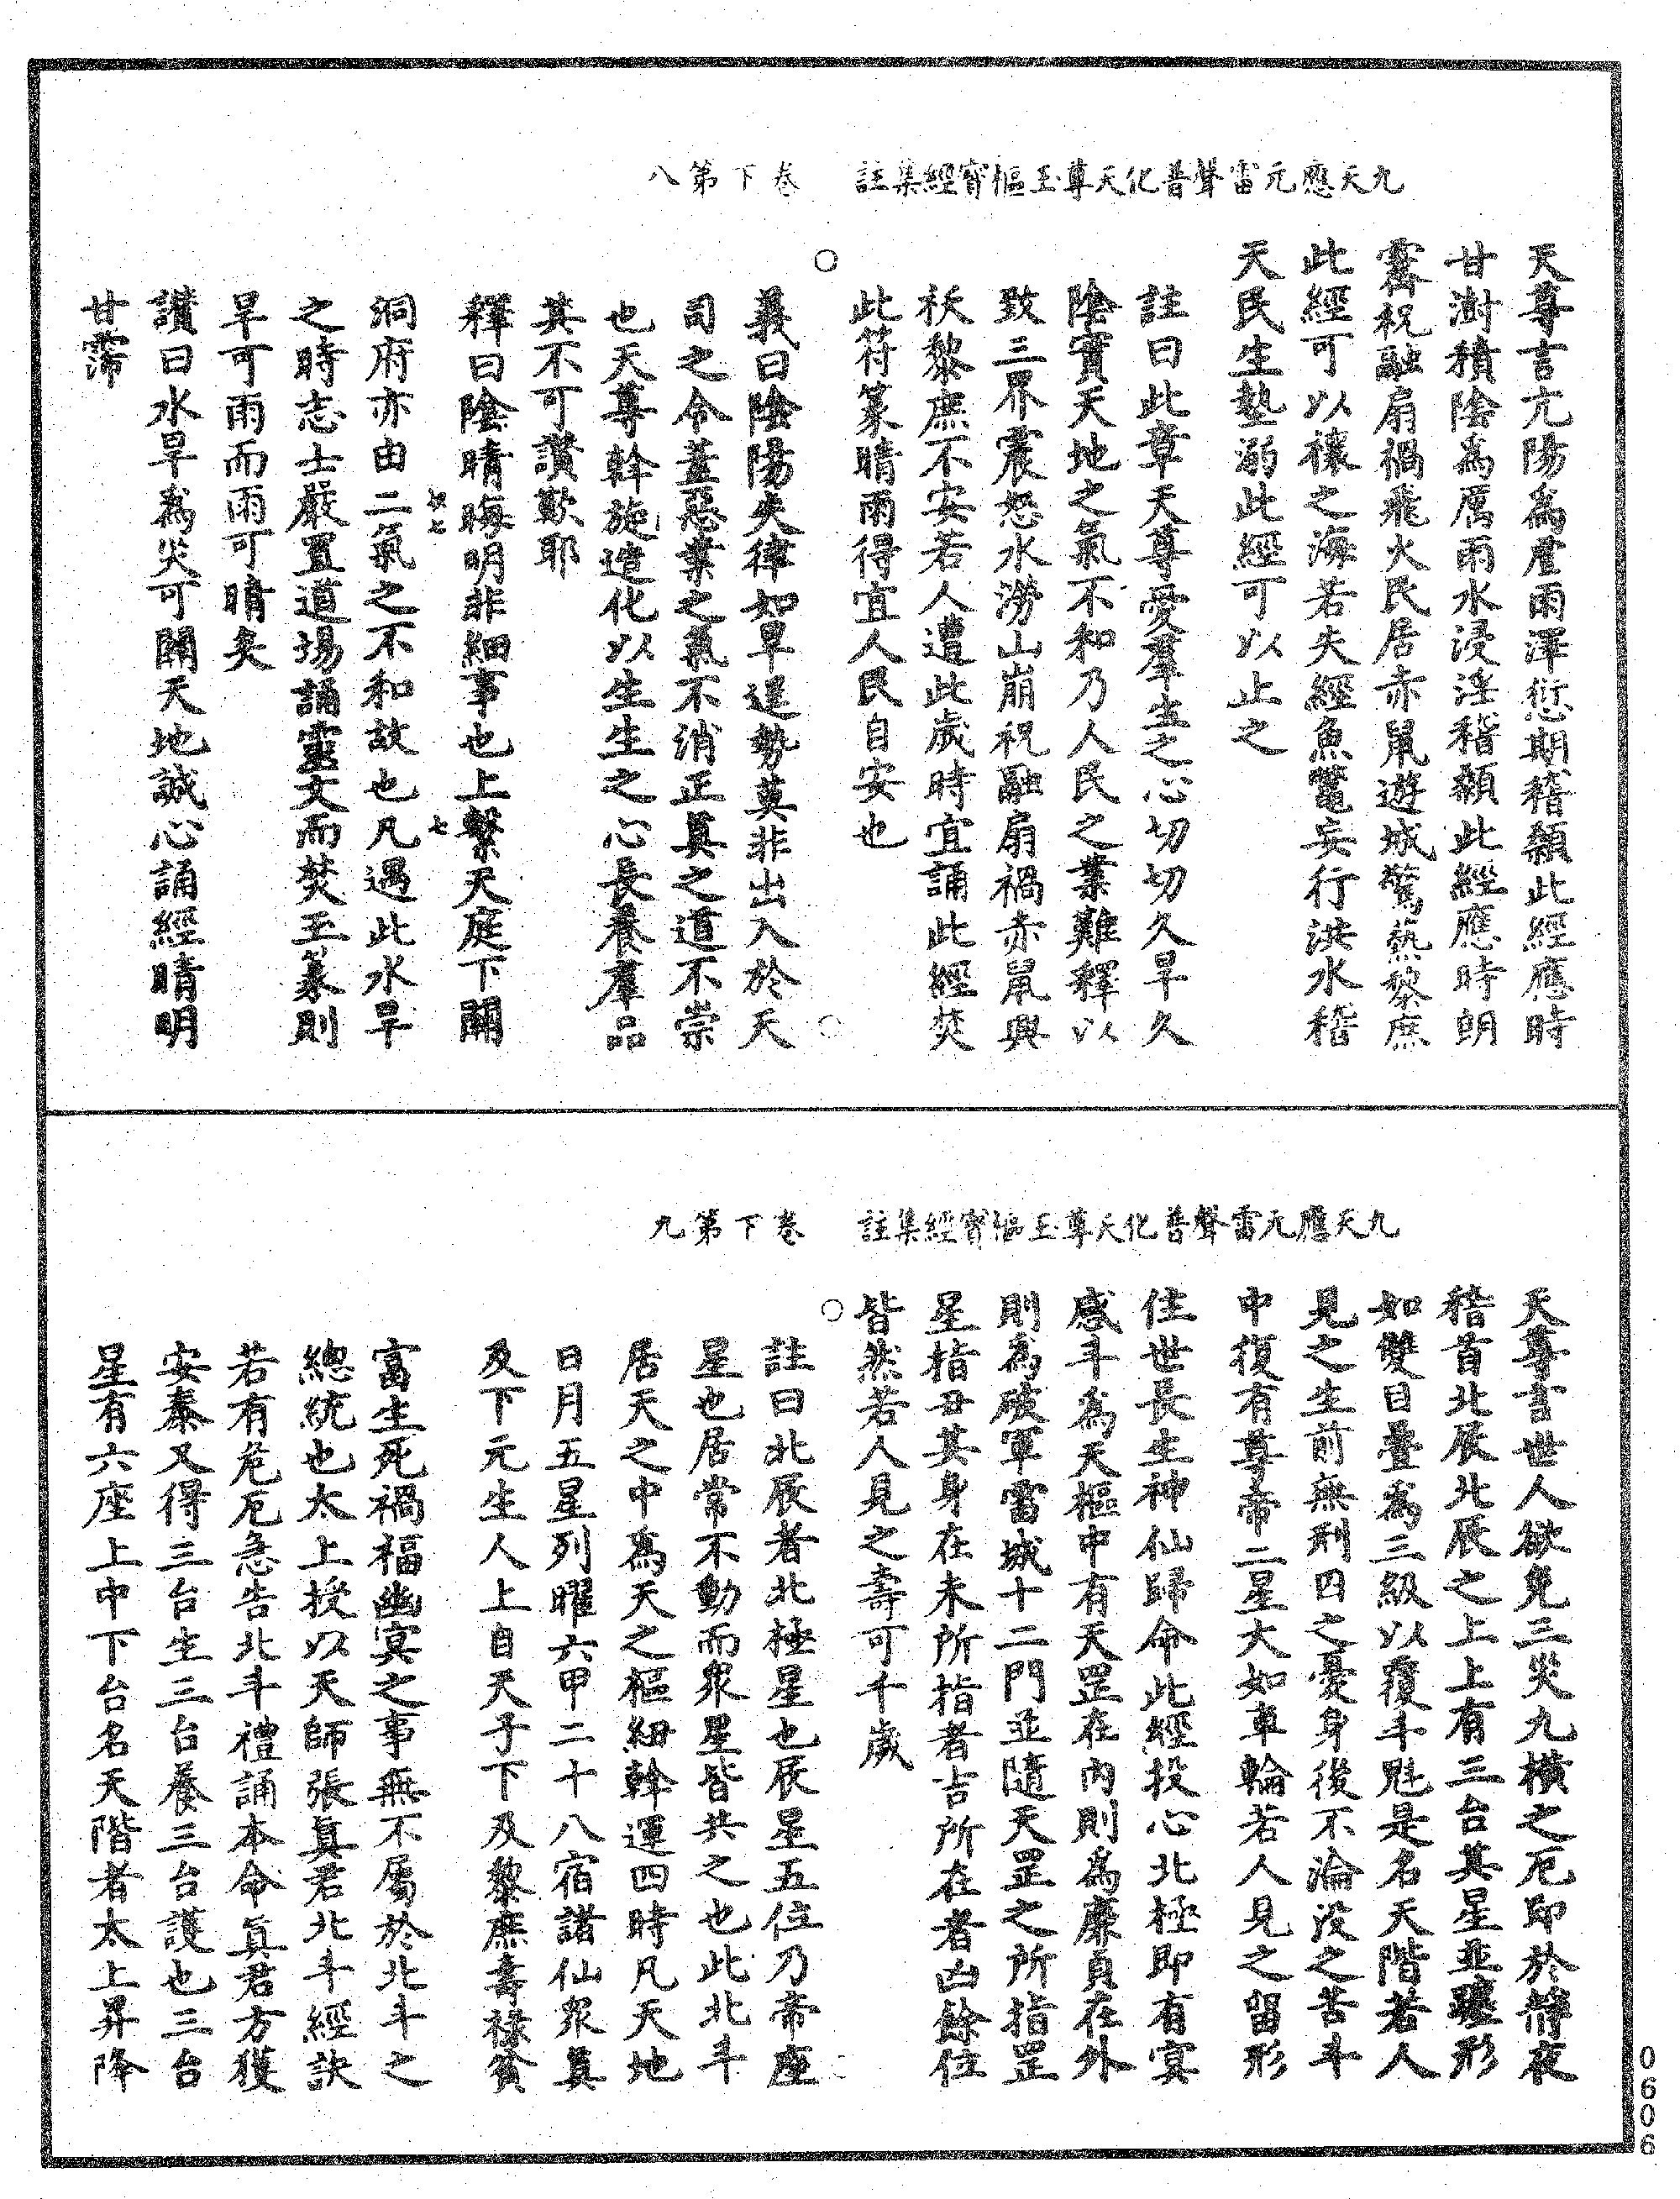 九天應元雷聲普化天尊玉樞寶經集註　卷下第八
天尊言亢陽為虐雨澤愆期稽顙此經應時
甘澍積陰為厲雨水浸淫稽顙此經應時朗
霽祝融扇禍飛火民居赤鼠遊城驚爇黎庶
此經可以禳之海若失經魚鼈妄行洪水稽
天民生墊溺此經可以止之
註曰此章天尊愛羣生之心切切久旱久
陰實天地之氣不和乃人民之業難釋以
致三界震怒水澇山崩祝融扇禍赤鼠與
袄黎庶不安若人遭此歲時宜誦此經焚
此符篆晴雨得宜人民自安也
○
義曰陰陽失律如旱運勢莫非出入於天
司之令蓋惡業之氣不消正真之道不崇
也天尊斡旋造化以生生之心長養羣品
其不可讚歎耶
釋曰陰晴晦明非細事也上繫天庭下關
七
洞府亦由二氣之不和故也凡遇此水旱
之時志士嚴置道場誦靈文而焚玉篆則
旱可雨而雨可晴矣
讚曰水旱為災可關天地誠心誦經晴明
甘霈
九天應元雷聲普化天尊玉樞寶經集註　卷下第九
天尊言世人欲免三災九橫之厄即於靜夜
稽首北辰北辰之上上有三台其星並躔形
如雙目疊為三級以覆斗魁是名天階若人
見之生前無刑囚之憂身後不淪沒之苦斗
中復有尊帝二星大如車輪若人見之留形
住世長生神仙歸命此經投心北極即有冥
感斗為天樞中有天罡在內則為廉貞在外
則為破軍雷城十二門並隨天罡之所指罡
星指丑其身在未所指者吉所在者凶餘位
皆然若人見之壽可千歲
○
註曰北辰者北極星也辰星五位乃帝座
星也居常不動而眾星皆共之也此北斗
居天之中為天之樞紐斡運四時凡天地
日月五星列曜六甲二十八宿諸仙眾真
及下元生人上自天子下及黎庶壽祿貧
富生死禍福幽冥之事無不屬於北斗之
總統也太上授以天師張真君北斗經訣
若有危厄急告北斗禮誦本命真君方獲
安泰又得三台生三台養三台護也三台
星有六座上中下台名天階者太上昇降
0606